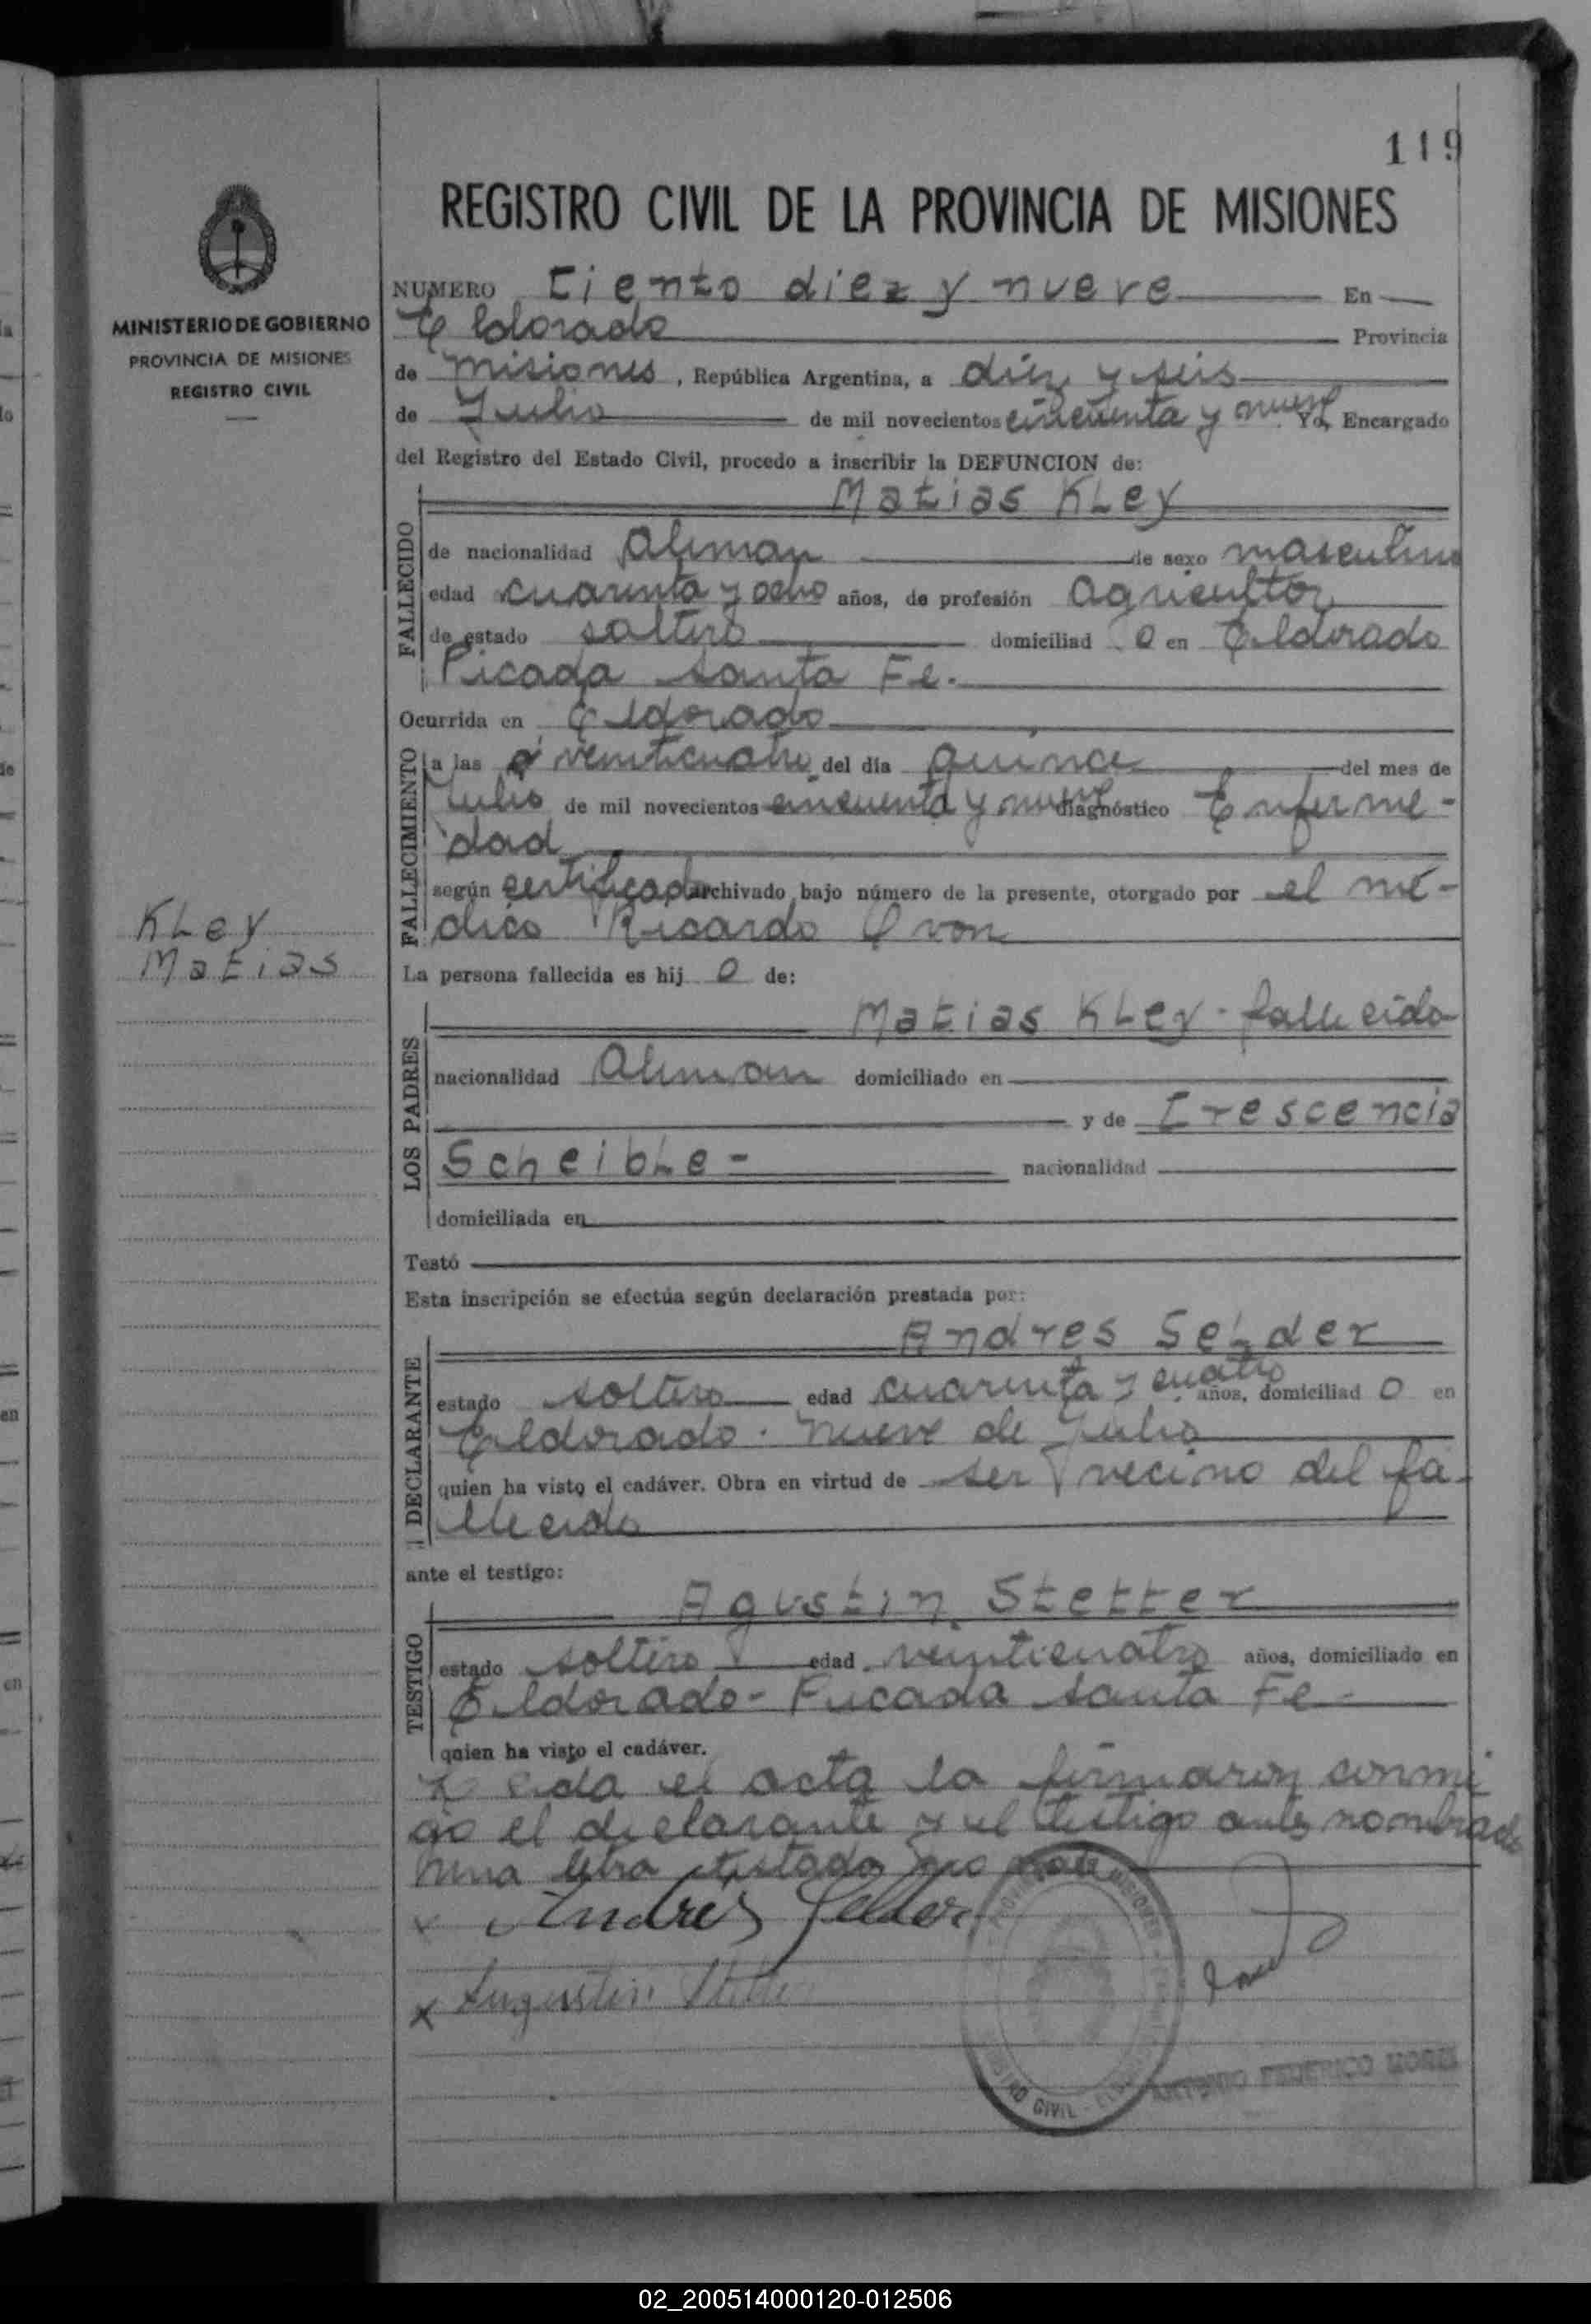 119
REGISTRO CIVIL DE LA PROVINCIA DE MISIONES
MINISTERIO DE GOBIERNO
PROVINCIA DE MISIONES
REGISTRO CIVIL
NUMERO Ciento diez y nueve En
Eldorado Provincia
de Misiones, República Argentina, a diez y seis
de Julio de mil novecientos cincuenta y nueve Yo, Encargado
del Registro del Estado Civil, procedo a inscribir la DEFUNCION de:
Matias KLey
FALLECIDO
de nacionalidad Aleman de sexo masculino
edad cuarenta y ocho años, de profesión agricultor
de estado soltero domiciliad o en Eldorado
Picada Santa Fe.
Ocurrida en Eldorado
FALLECIMIENTO
a las veinticuatro del día quince del mes de
Julio de mil novecientos cincuenta y nueve diagnóstico Enferme-
dad
según certificado archivado bajo número de la presente, otorgado por el mé-
dico Ricardo
KLey
Matias
La persona fallecida es hij o de:
LOS PADRES
Matias KLey - fallecido
nacionalidad Aleman domiciliado en
y de Crescencia
ScheibLe - nacionalidad
domiciliada en
Testó
Esta inscripción se efectúa según declaración prestada por:
DECLARANTE
Andres SeLder
estado soltero edad cuarenta y cuatro años, domiciliad o en
Eldorado. Nueve de Julio
quien ha visto el cadáver. Obra en virtud de ser vecino del fa-
llecido
ante el testigo:
TESTIGO
Agustin Stetter
estado soltero edad veinticuatro años, domiciliado en
Eldorado - Picada Santa Fe -
quien ha visto el cadáver.
Leida el acta la firmaron conmi
go el declarante y el testigo antes nombrado
una letra testado no vale
x Andrés Selder
x Augustin Stetter
REGISTRO CIVIL
ANTONIO FEDERICO MOREL
02_200514000120-012506